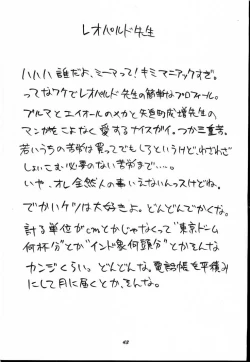 レオパルド先生
ハハハ 誰だよ、ミーマって! キミマニアックすぎ。
ってなワケでレオパルド先生の簡単なプロフィール。
ブルマとエイオールのメカと矢追町成増先生の
マンガをこよなく愛するナイスガイ。カつ三重苦。
若いうちの苦労は買ってでもしろというけど、わざわざ
しょいこむ必要のない苦労まで…‥。
いや、オレ全然人の事いえないんっスけどね。
でかいケツは大好きよ。どんどんでかくな。
計る単位がcmとかじゃなくって“東京ドーム
何杯分”とか“インド象何頭分”とかそんな
カンジくらい。どんどんな。電話帳を平積み
にして月に届くとか、そんな。
42